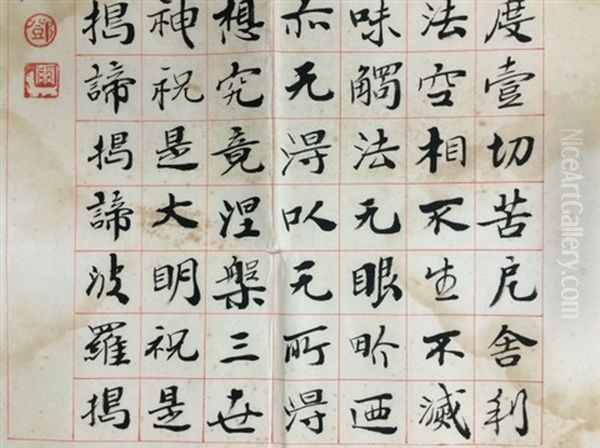 度壹切苦厄舍利
法空相不生不滅
味觸法无眼畍迺
亦无得以无所得
想究竟涅槃三世
神祝是大明祝是
揭諦揭諦波羅揭
鄧
NiceArtGallery.com